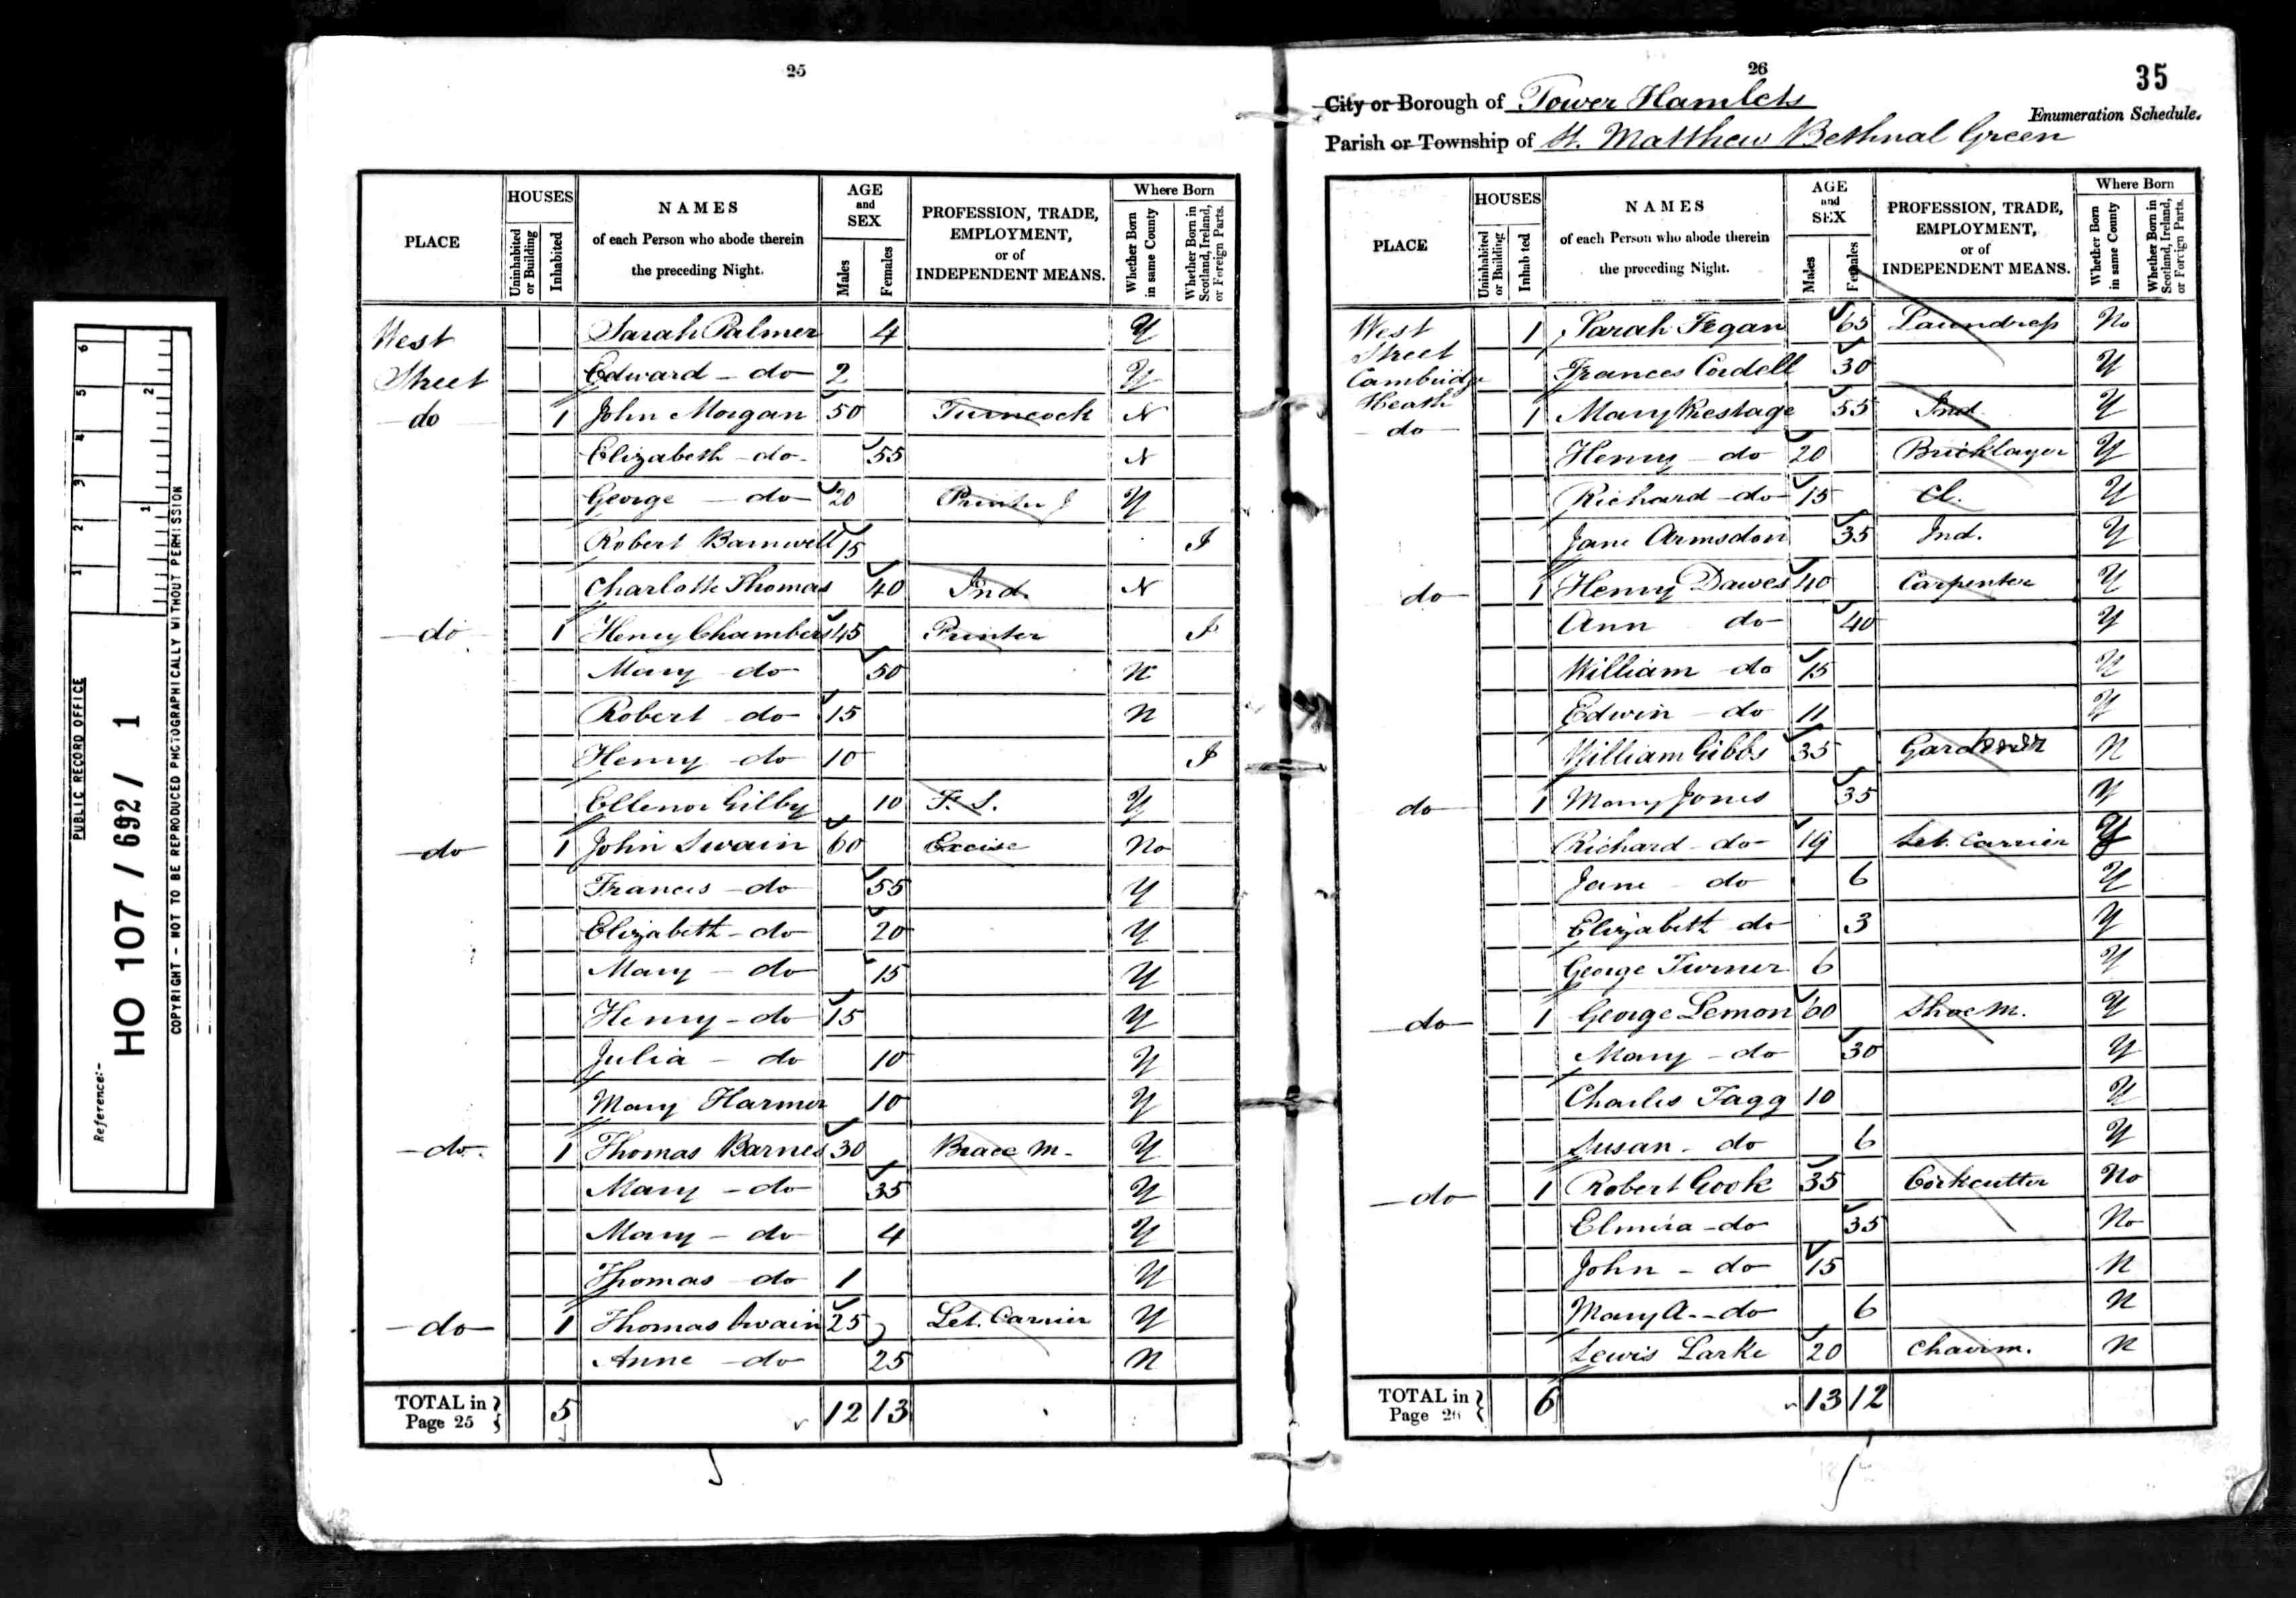 PUBLIC RECORD OFFICE
Reference:-
HO 107 / 692 / 1
COPYRIGHT - NOT TO BE REPRODUCED PHOTOGRAPHICALLY WITHOUT PERMISSION
1 2 3 4 5 6
1 2
25
PLACE
HOUSES
Uninhabited or Building
Inhabited
NAMES
of each Person who abode therein
the preceding Night.
AGE
and
SEX
Males
Females
PROFESSION, TRADE,
EMPLOYMENT,
or of
INDEPENDENT MEANS.
Where Born
Whether Born in same County
Whether Born in Scotland, Ireland, or Foreign Parts.
West Sarah Palmer 4 Y
Street Edward - do 2 Y
do 1 John Morgan 50 Turncock N
Elizabeth - do - 55 N
George - do 20 Printer J Y
Robert Barnwell 15 I
Charlotte Thomas 40 Ind. N
do 1 Henry Chambers 45 Printer I
Mary do 50 N
Robert - do 15 N
Henry do 10 I
Ellenor Gilby 10 F. S. Y
do 1 John Swain 60 Excise No
Frances - do 55 Y
Elizabeth - do 20 Y
Mary - do 15 Y
Henry - do 15 Y
Julia - do 10 Y
Mary Harmer 10 Y
do 1 Thomas Barnes 30 Brace M - Y
Mary - do 35 Y
Mary - do 4 Y
Thomas - do 1 Y
do 1 Thomas Swain 25 Let. Carrier Y
Anne - do 25 N
TOTAL in Page 25 } 5 12 13
26
35
City or Borough of Tower Hamlets
Enumeration Schedule.
Parish or Township of St. Matthew Bethnal Green
PLACE
HOUSES
Uninhabited or Building
Inhabited
NAMES
of each Person who abode therein
the preceding Night.
AGE
and
SEX
Males
Females
PROFESSION, TRADE,
EMPLOYMENT,
or of
INDEPENDENT MEANS.
Where Born
Whether Born in same County
Whether Born in Scotland, Ireland, or Foreign Parts.
West Street 1 Sarah Fegan 65 Laundress No
Cambridge Frances Cordell 30 Y
Heath do 1 Mary Prestage 55 Ind. Y
Henry - do 20 Bricklayer Y
Richard - do 15 Cl. Y
Jane Armsdon 35 Ind. Y
do 1 Henry Dawes 40 Carpenter Y
Ann do 40 Y
William - do 15 Y
Edwin - do 11 Y
William Gibbs 35 Gardener N
do 1 Mary Jones 35 Y
Richard - do 19 Let. Carrier Y
Jane do 6 Y
Elizabeth do 3 Y
George Turner 6 Y
do 1 George Lemon 60 Shoe M. Y
Mary - do 30 Y
Charles Tagg 10 Y
Susan - do 6 Y
do 1 Robert Cook 35 Corkcutter No
Elmira - do 35 No
John - do 15 N
Mary A - - do 6 N
Lewis Larke 20 Chairm. N
TOTAL in Page 26 } 6 13 12